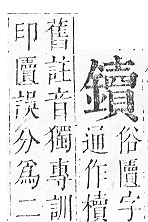 鑟
俗匵字
通作櫝
舊註音獨專訓
印匵誤分爲二